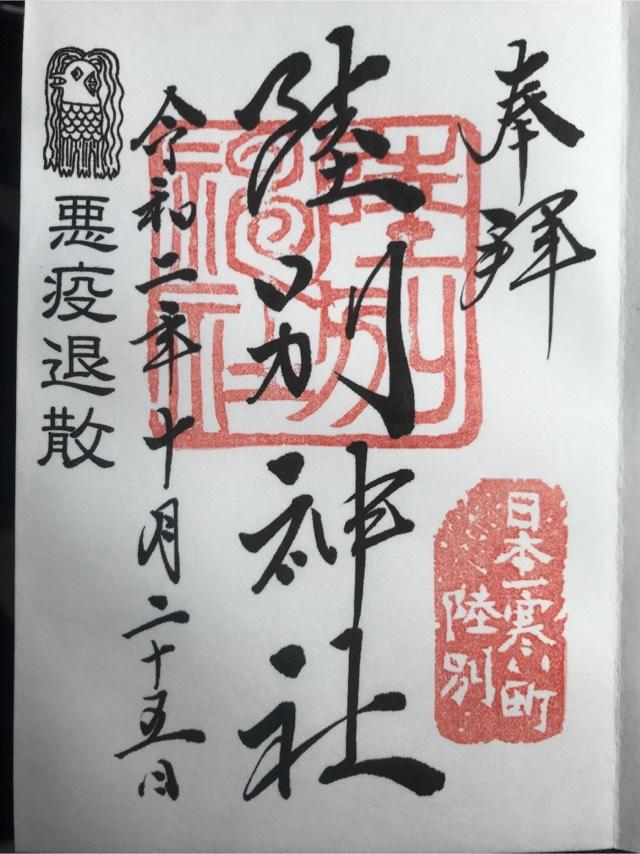 奉拝
日本一寒い町
陸別
陸別神社
陸別神社
令和二年十月二十五日
悪疫退散